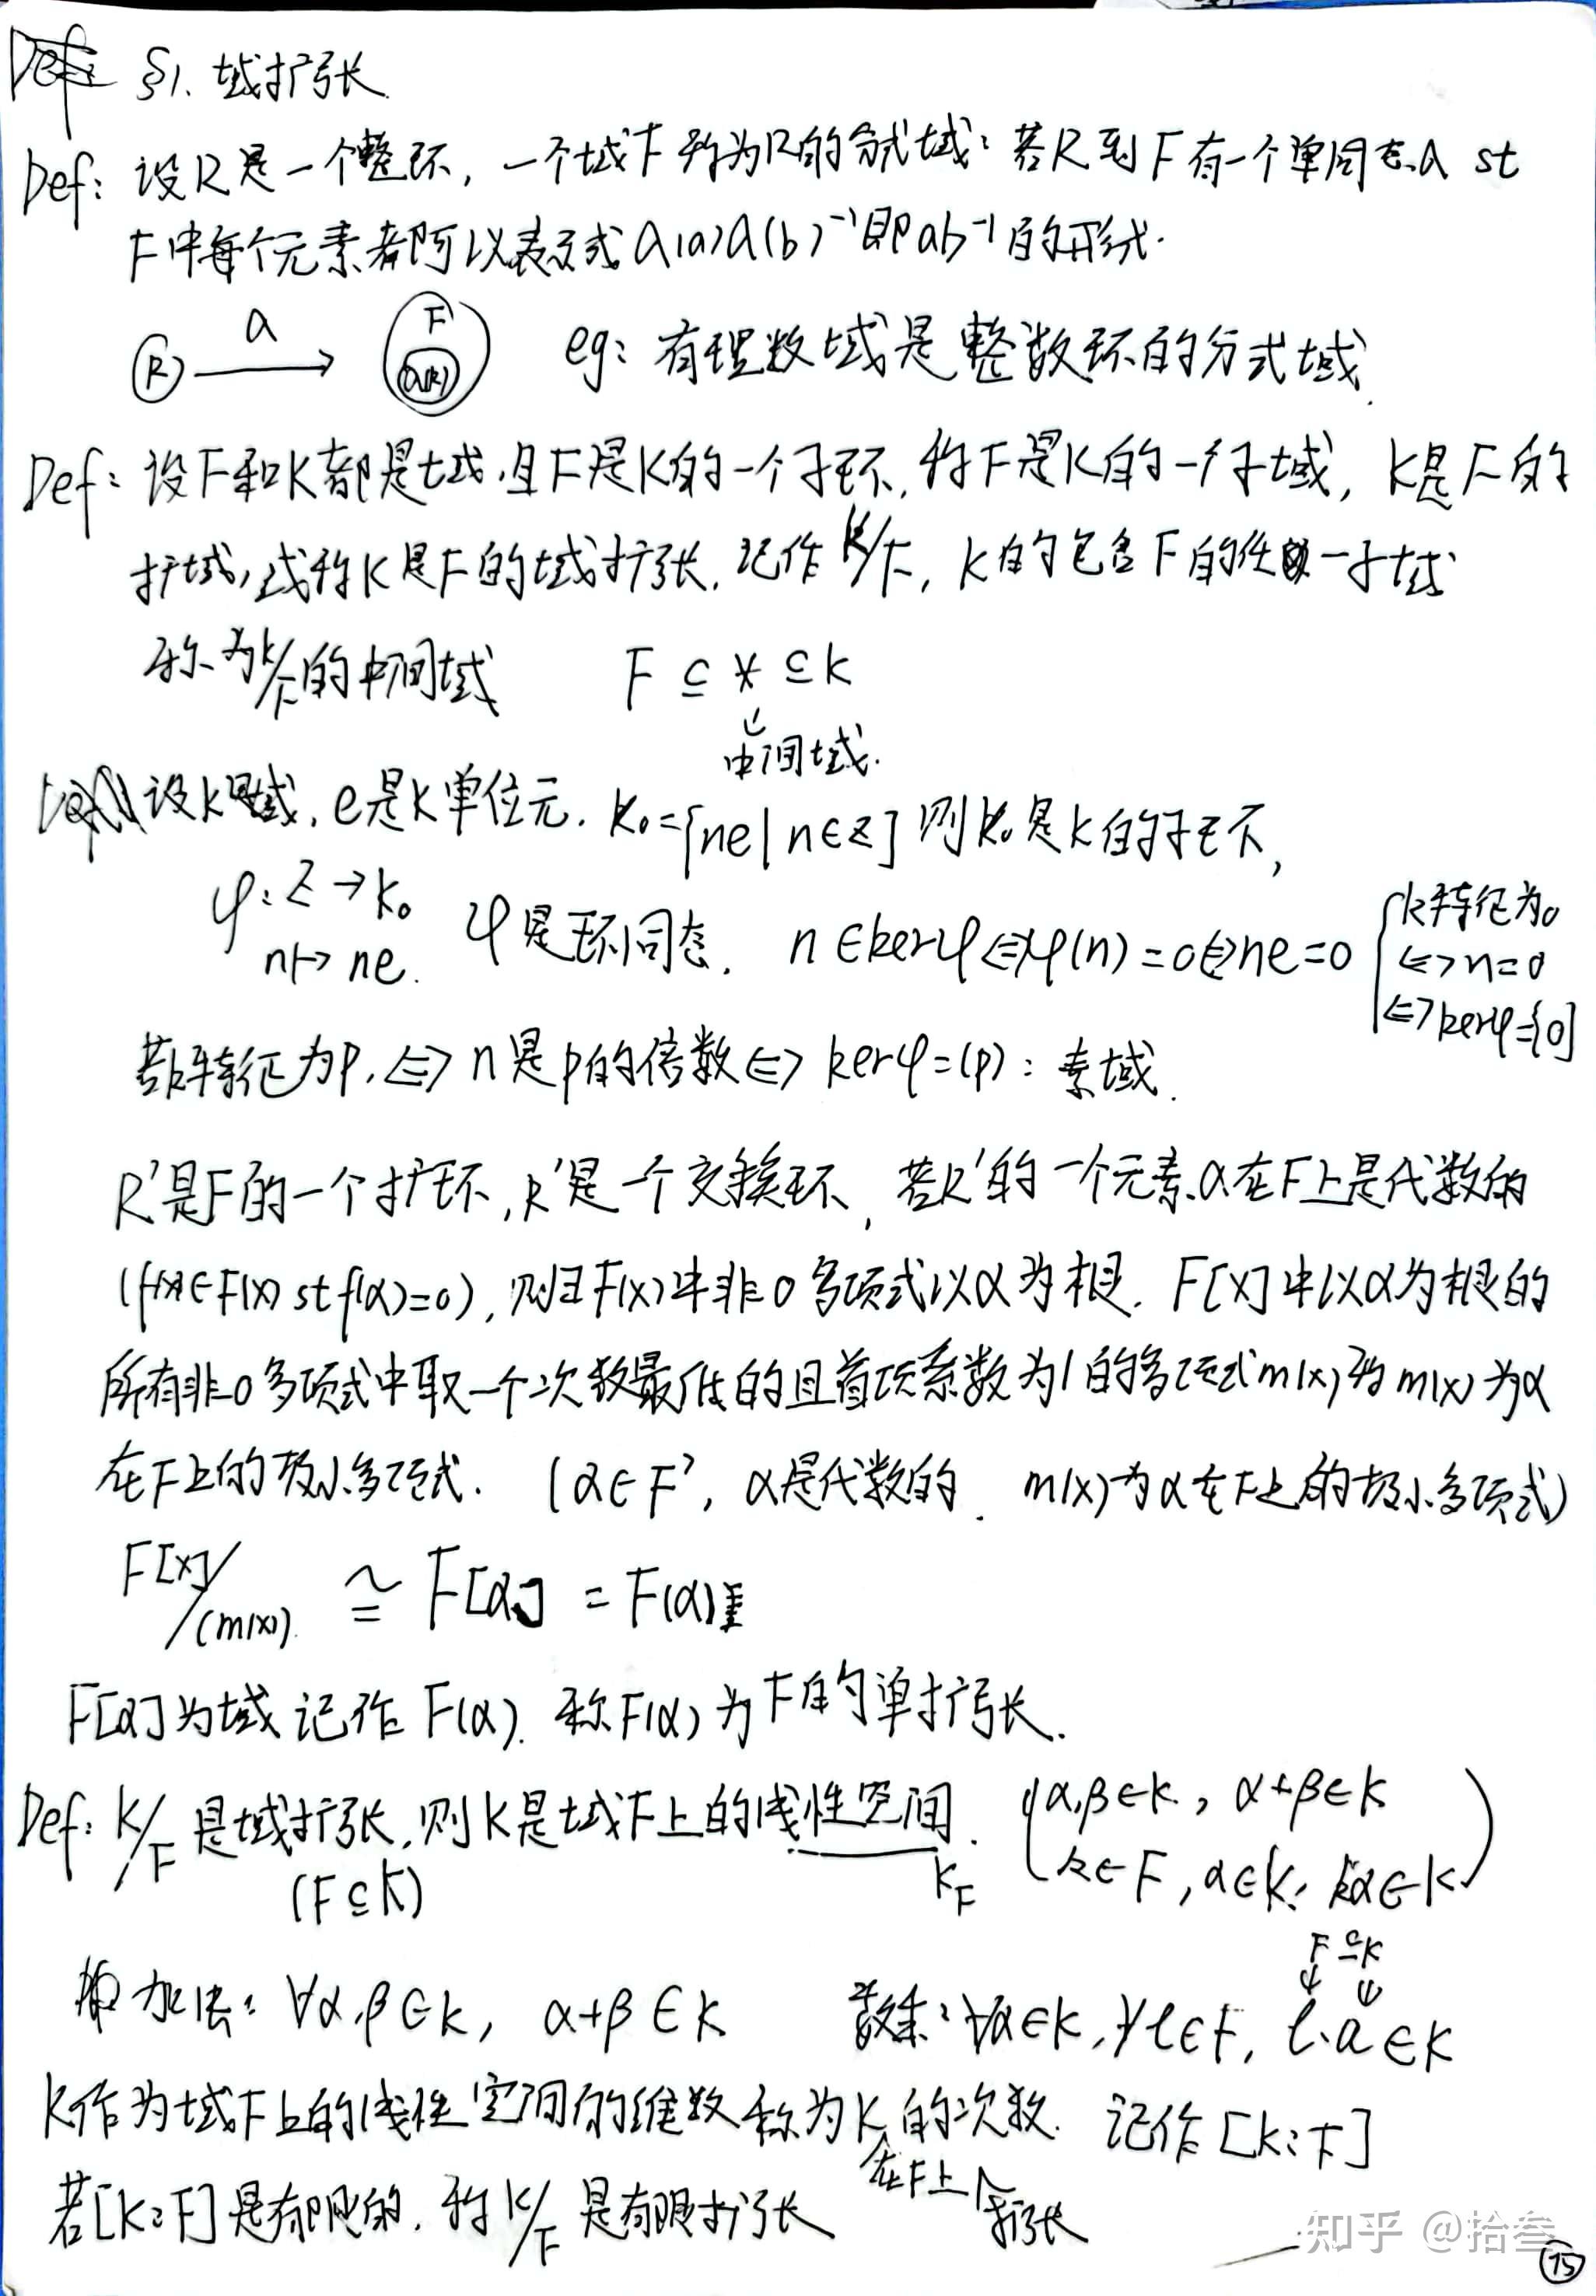 §1. 域扩张
Def: 设R是一个整环, 一个域F称为R的分式域: 若R到F有一个单同态σ st
F中每个元素都可以表示式σ(a)σ(b)⁻¹即ab⁻¹的形式.
R σ→ F σ(R) eg: 有理数域是整数环的分式域.
Def: 设F和K都是域, 且F是K的一个子环, 称F是K的一个子域, K是F的
扩域, 或称K是F的域扩张, 记作K/F, K的包含F的任一子域
称为K/F的中间域 F ⊆ * ⊆ K
↓
中间域.
设K是域, e是K单位元. K₀={ne|n∈Z} 则K₀是K的子环,
φ: Z→K₀
n↦ne. φ是环同态. n∈kerφ⇔φ(n)=0⇔ne=0
K特征为0
⇔n=0
⇔kerφ={0}
若K特征为p, ⇔ n是p的倍数⇔ kerφ=(p): 素域.
R'是F的一个扩环, R'是一个交换环, 若R'的一个元素α在F上是代数的
(f(x)∈F(x) st f(α)=0), 则∃F(x)中非0多项式以α为根. F[x]中以α为根的
所有非0多项式中取一个次数最低的且首项系数为1的多项式m(x)称m(x)为α
在F上的极小多项式. (α∈F', α是代数的. m(x)为α在F上的极小多项式)
F[x]/(m(x)) ≅ F[α] = F(α)
F[α]为域 记作F(α). 称F(α)为F的单扩张.
Def: K/F 是域扩张, 则K是域F上的线性空间. (α,β∈K, α+β∈K
(F⊆K) K_F k∈F, α∈K, kα∈K)
加法: ∀α,β∈K, α+β∈K 数乘: ∀α∈K, ∀l∈F, l·a∈K
F⊆K
↓ ↓
K作为域F上的线性空间的维数称为K在F上的次数. 记作[K:F]
若[K:F]是有限的, 称K/F是有限扩张 扩张
知乎 @拾叁
75